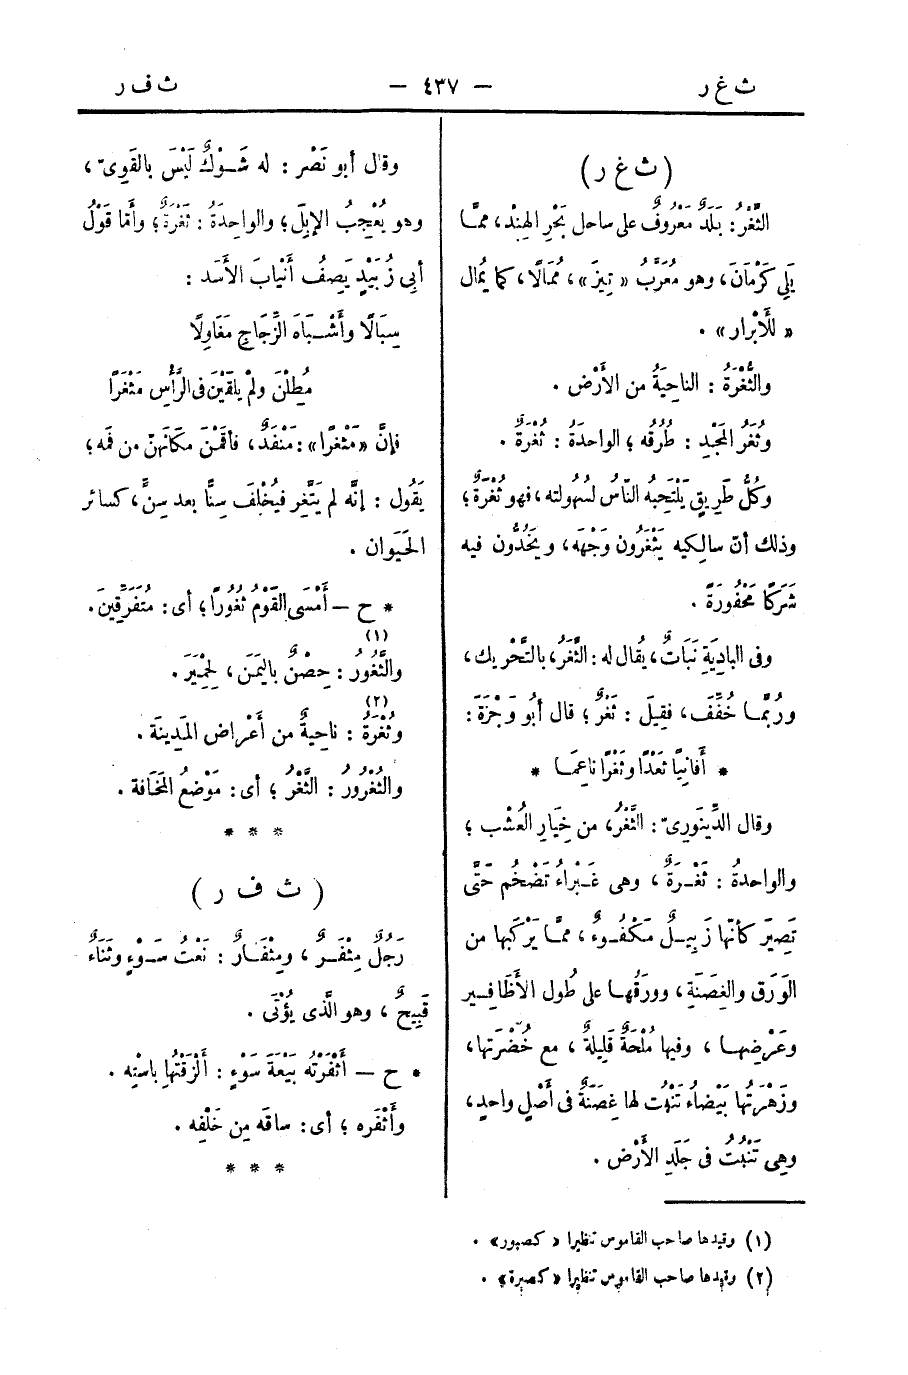 ث غ ر
— ٤٣٧ —
ث ف ر
(ث غ ر)
الثَّغْرُ: بَلَدٌ مَعْرُوفٌ على ساحل بَحْرِ الهِنْد، ممَّا
يَلِي كَرْمَانَ، وهو مُعَرَّبُ «تِيزَ»، مُمَالًا، كما يُمَال
«للْأَبْرار».
والثُّغْرَةُ: الناحِيَةُ من الأَرْض.
وثُغَرُ المَجْدِ: طُرُقُه؛ الواحِدَةُ: ثُغْرَةٌ.
وكُلُّ طَرِيقٍ يَلْتَحِبُه النّاسُ لسُهُولته، فهو ثُغْرَةٌ؛
وذلك أنّ سالِكِيه يَثْغَرُون وَجْهَه، ويَخُدُّون فيه
شَرَكًا مَحْفُورَةً.
وفى البادِيَةِ نَبَاتٌ، يُقال له: الثَّغَرُ، بالتَّحْرِيك،
ورُبَّما خُفِّفَ، فقِيلَ: ثَغْرٌ؛ قال أبُو وَجْزَةَ:
* أَفانِيًا ثَعْدًا وثَغْرًا ناعِمَا *
وقال الدِّينَوَرِىّ: الثَّغْرُ، من خِيَارِ العُشْب؛
والواحدةُ: ثَغْرَةٌ، وهى غَبْراءُ تَضْخُم حَتَّى
تَصِيرَ كأنّها زَبِيلٌ مَكْفُوءٌ، ممَّا يَرْكَبُها من
الوَرَق والغِصَنَةِ، ووَرَقُها على طُول الأَظَافِير
وعَرْضِها، وفيها مُلْحَةٌ قَلِيلَةٌ، مع خُضْرَتها،
وزَهْرَتُها بَيْضاءُ تَنْبُت لها غِصَنَةٌ فى أَصْلٍ واحدٍ،
وهِى تَنْبُتُ فى جَلَدِ الأَرْض.
وقال أبو نَصْر: له شَوْكٌ لَيْسَ بالقَوِىّ،
وهو يُعْجِبُ الإبِلَ؛ والواحِدَةُ: ثَغْرَةٌ؛ وأَمّا قَوْلُ
أبِى زُبَيْدٍ يَصِفُ أَنْيابَ الأَسَد:
سِبَالًا وأَشْبَاهَ الزِّجَاجِ مَغَاوِلًا
مُطِلْنَ ولَمْ يَلْقَيْنَ فى الرَّأْسِ مَثْغَرًا
فإنَّ «مَثْغَرًا»: مَنْفَذٌ، فأقَمْنَ مَكَانَهنّ من فَمه؛
يَقُول: إنَّه لم يَتَّغِر فيُخْلِفَ سِنًّا بعد سِنٍّ، كسائر
الحَيَوان.
* ح — أَمْسَى القَوْمُ ثُغُورًا؛ أى: مُتَفَرِّقِينَ.
والثُّغُورُ(١): حِصْنٌ باليَمَن، لِحِمْيَرَ.
وثُغْرَةُ(٢): ناحِيةٌ من أَعْراض المَدِينَة.
والثُّغْرُورُ: الثَّغْرُ؛ أى: مَوْضعُ المَخَافَة.
* * *
(ث ف ر)
رَجُلٌ مِثْفَرٌ، ومِثْفَارٌ: نَعْتُ سَوْءٍ وثَنَاءٌ
قَبِيحٌ، وهو الَّذى يُؤْتَى.
* ح — أَثْفَرْتُه بَيْعَةَ سَوْءٍ: أَلْزَقْتُها باسْتِه.
وأَثْفَره؛ أى: ساقَه مِن خَلْفِه.
* * *
(١) وقيدها صاحب القاموس تنظيرا «كصبور».
(٢) وقيدها صاحب القاموس تنظيرا «كصبرة».